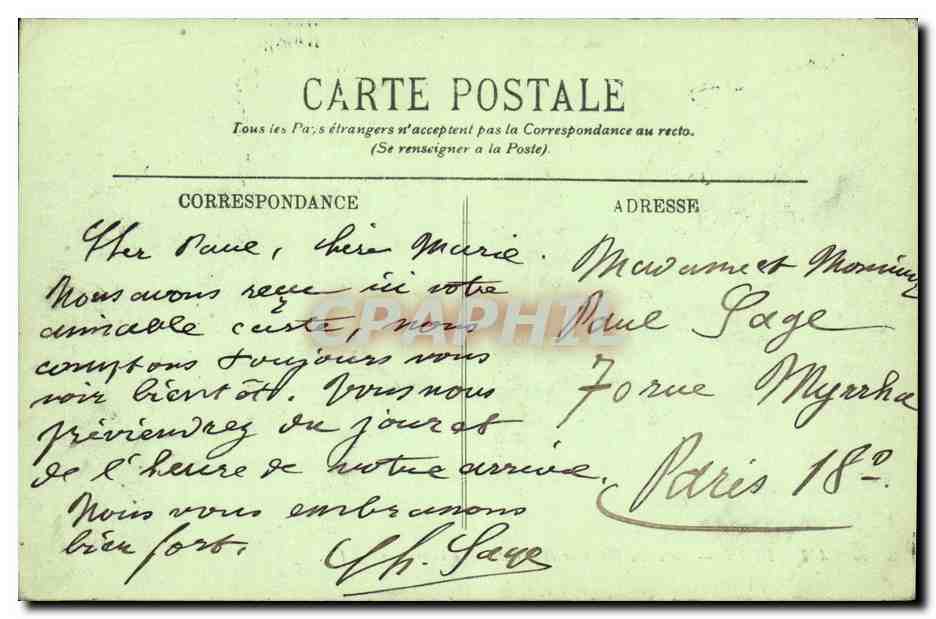 CARTE POSTALE
Tous les Pays étrangers n'acceptent pas la Correspondance au recto.
(Se renseigner a la Poste).
CORRESPONDANCE
Cher Paul, chère Marie.
Nous avons reçu ici votre
aimable carte, nous
comptons toujours vous
voir bientôt. Vous nous
préviendrez du jour et
de l'heure de votre arrivée.
Nous vous embrassons
bien fort.
Ch. Sage
ADRESSE
Madame et Monsieur
Paul Sage
70 rue Myrrha
Paris 18e
CPAPHIL